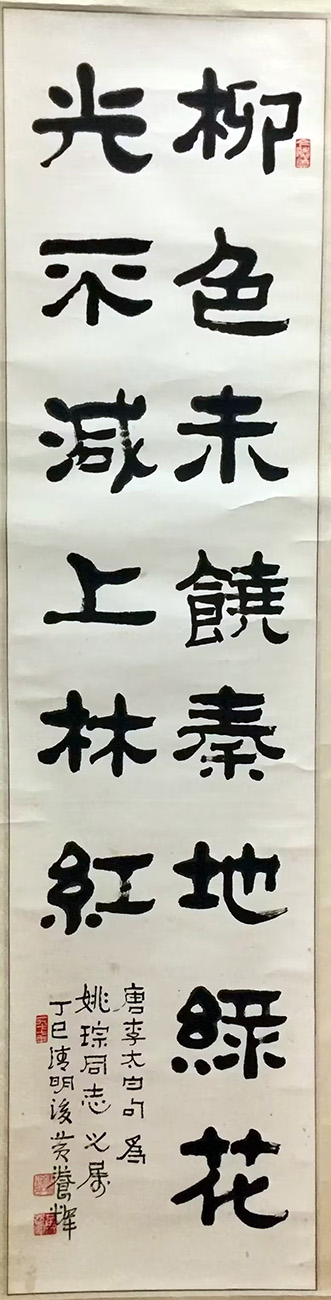 柳色未饒秦地綠花
光不減上林紅
唐李太白句為
姚琮同志之属
丁巳清明後黄養輝